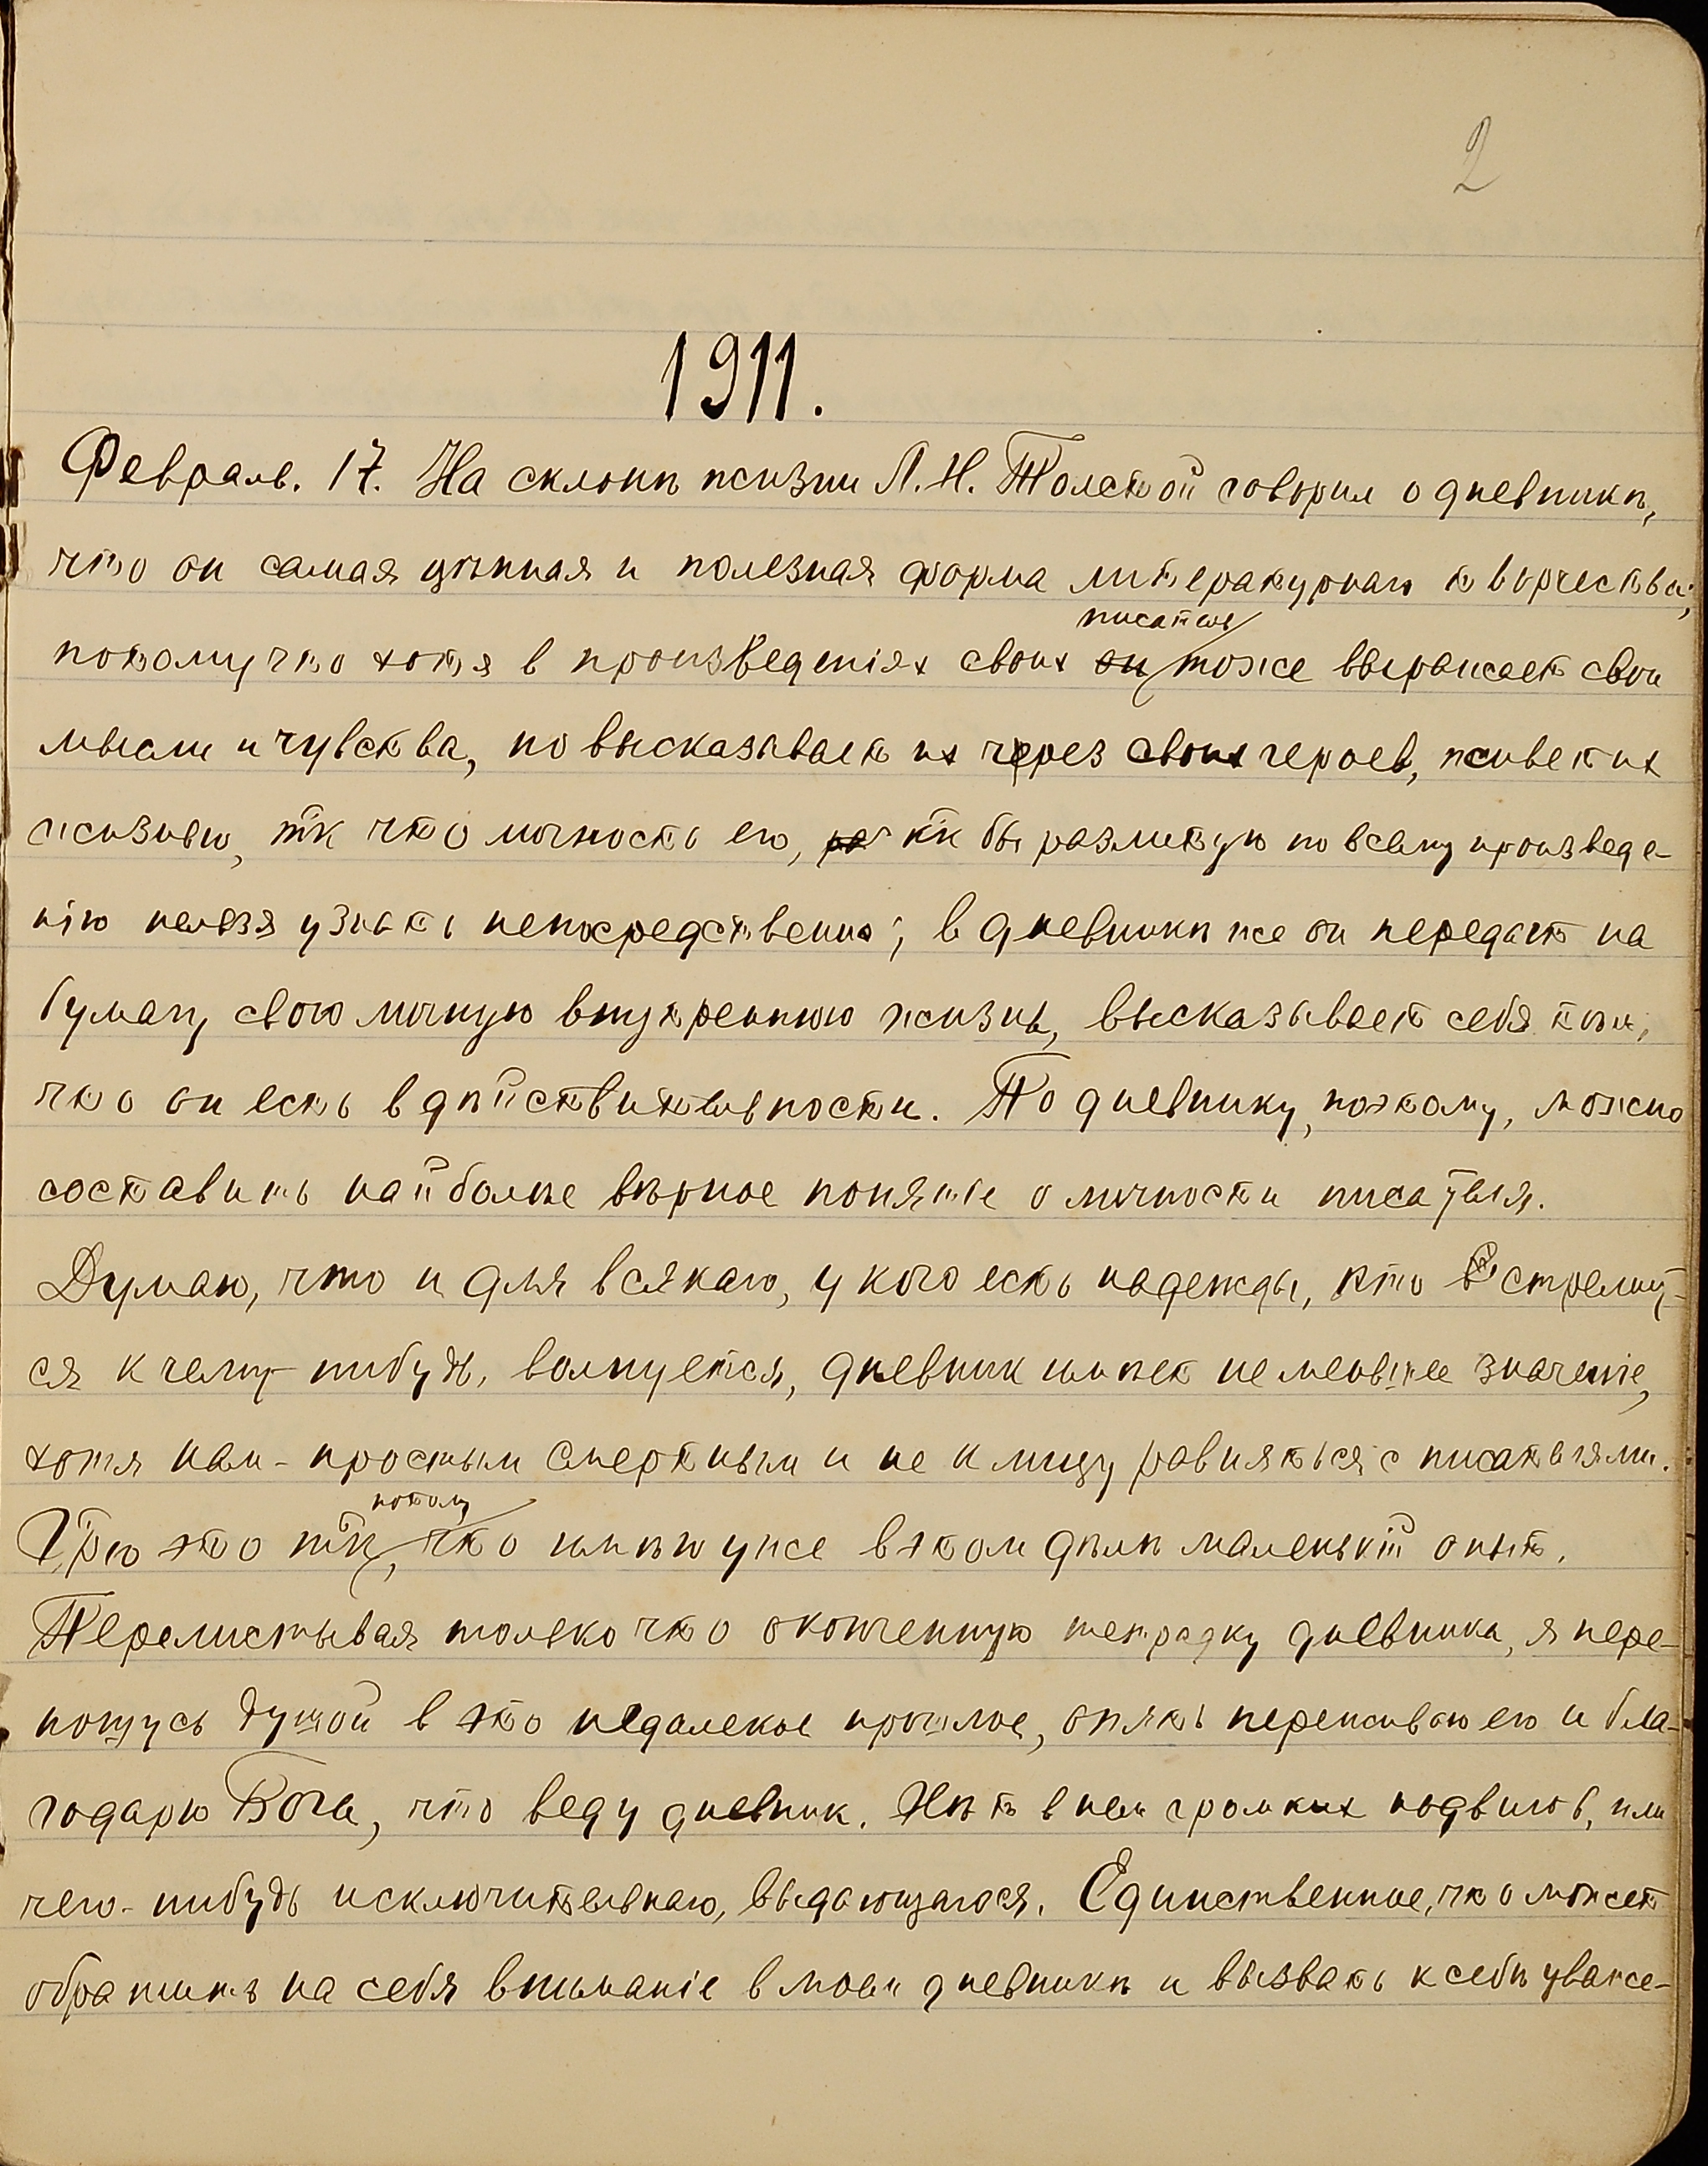 2
1911.
Февраль. 17. На склонѣ жизни Л. Н. Толстой говорил о дневникѣ,
что он самая цѣнная и полезная форма литературнаго творчества,
писатель
потому что хотя в произведеніях своих он тоже выражает свои
мысли и чувства, но высказывает их через своих героев, живет их
жизнью, тк что личность его, ра кк бы разлитую по всему произведе-
нію нельзя узнать непосредственно; в дневникѣ же он передает на
бумагу свою личную внутреннюю жизнь, высказывает себя тѣм,
что он есть в дѣйствительности. По дневнику, поэтому, можно
составить наиболѣе вѣрное понятіе о личности писателя.
Думаю, что и для всякаго, у кого есть надежды, кто стремит-
ся к чему-нибудь, волнуется, дневник имѣет не меньшее значеніе,
хотя нам - простым смертным и не к лицу равняться с писателями.
потому
Грю это тк, что имѣю уже в этом дѣлѣ маленькій опыт.
Перелистывая только что оконченную тетрадку дневника, я пере-
ношусь душой в это недалекое прошлое, опять переживаю его и бла-
годарю Бога, что веду дневник. Нѣтъ в нем громких подвигов, или
чего-нибудь исключительнаго, выдающагося. Единственное, что может
обратить на себя вниманіе в моем дневникѣ и вызвать к себѣ уваже-